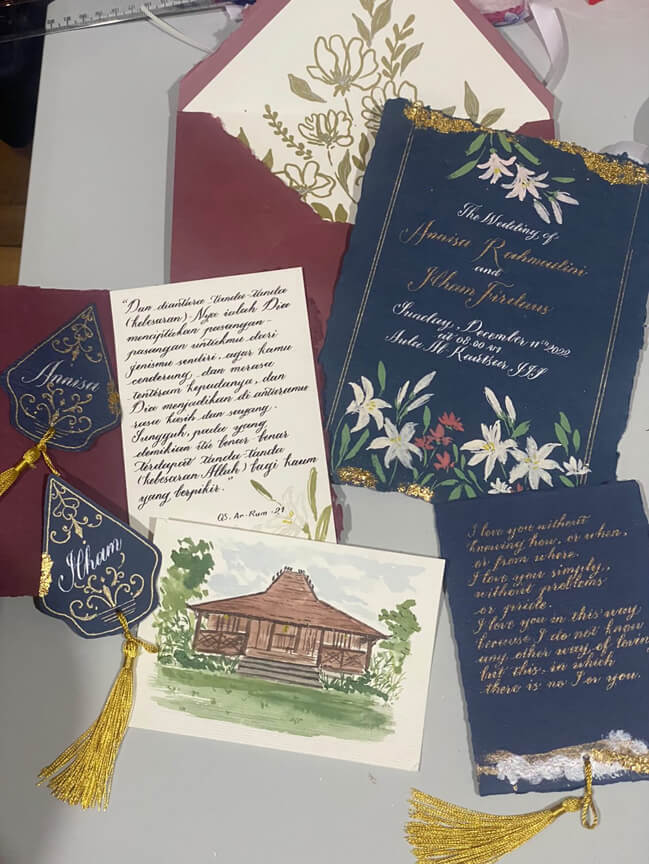 The Wedding of
Annisa Rahmadini
and
Ilham Firdaus
Sunday, December 11th 2022
at 08.00 am
Aula Al Kautsar
Annisa
Ilham
"Dan diantara tanda-tanda
(kebesaran) Nya ialah Dia
menciptakan pasangan-
pasangan untukmu dari
jenismu sendiri, agar kamu
cenderung dan merasa
tentram kepadanya, dan
Dia menjadikan di antaramu
rasa kasih dan sayang.
Sungguh, pada yang
demikian itu benar-benar
terdapat tanda-tanda
(kebesaran Allah) bagi kaum
yang berpikir."
QS. Ar-Rum :21
I love you without
knowing how, or when,
or from where.
I love you simply,
without problems
or pride.
I love you in this way
because I do not know
any other way of loving
but this, in which
there is no I or you.